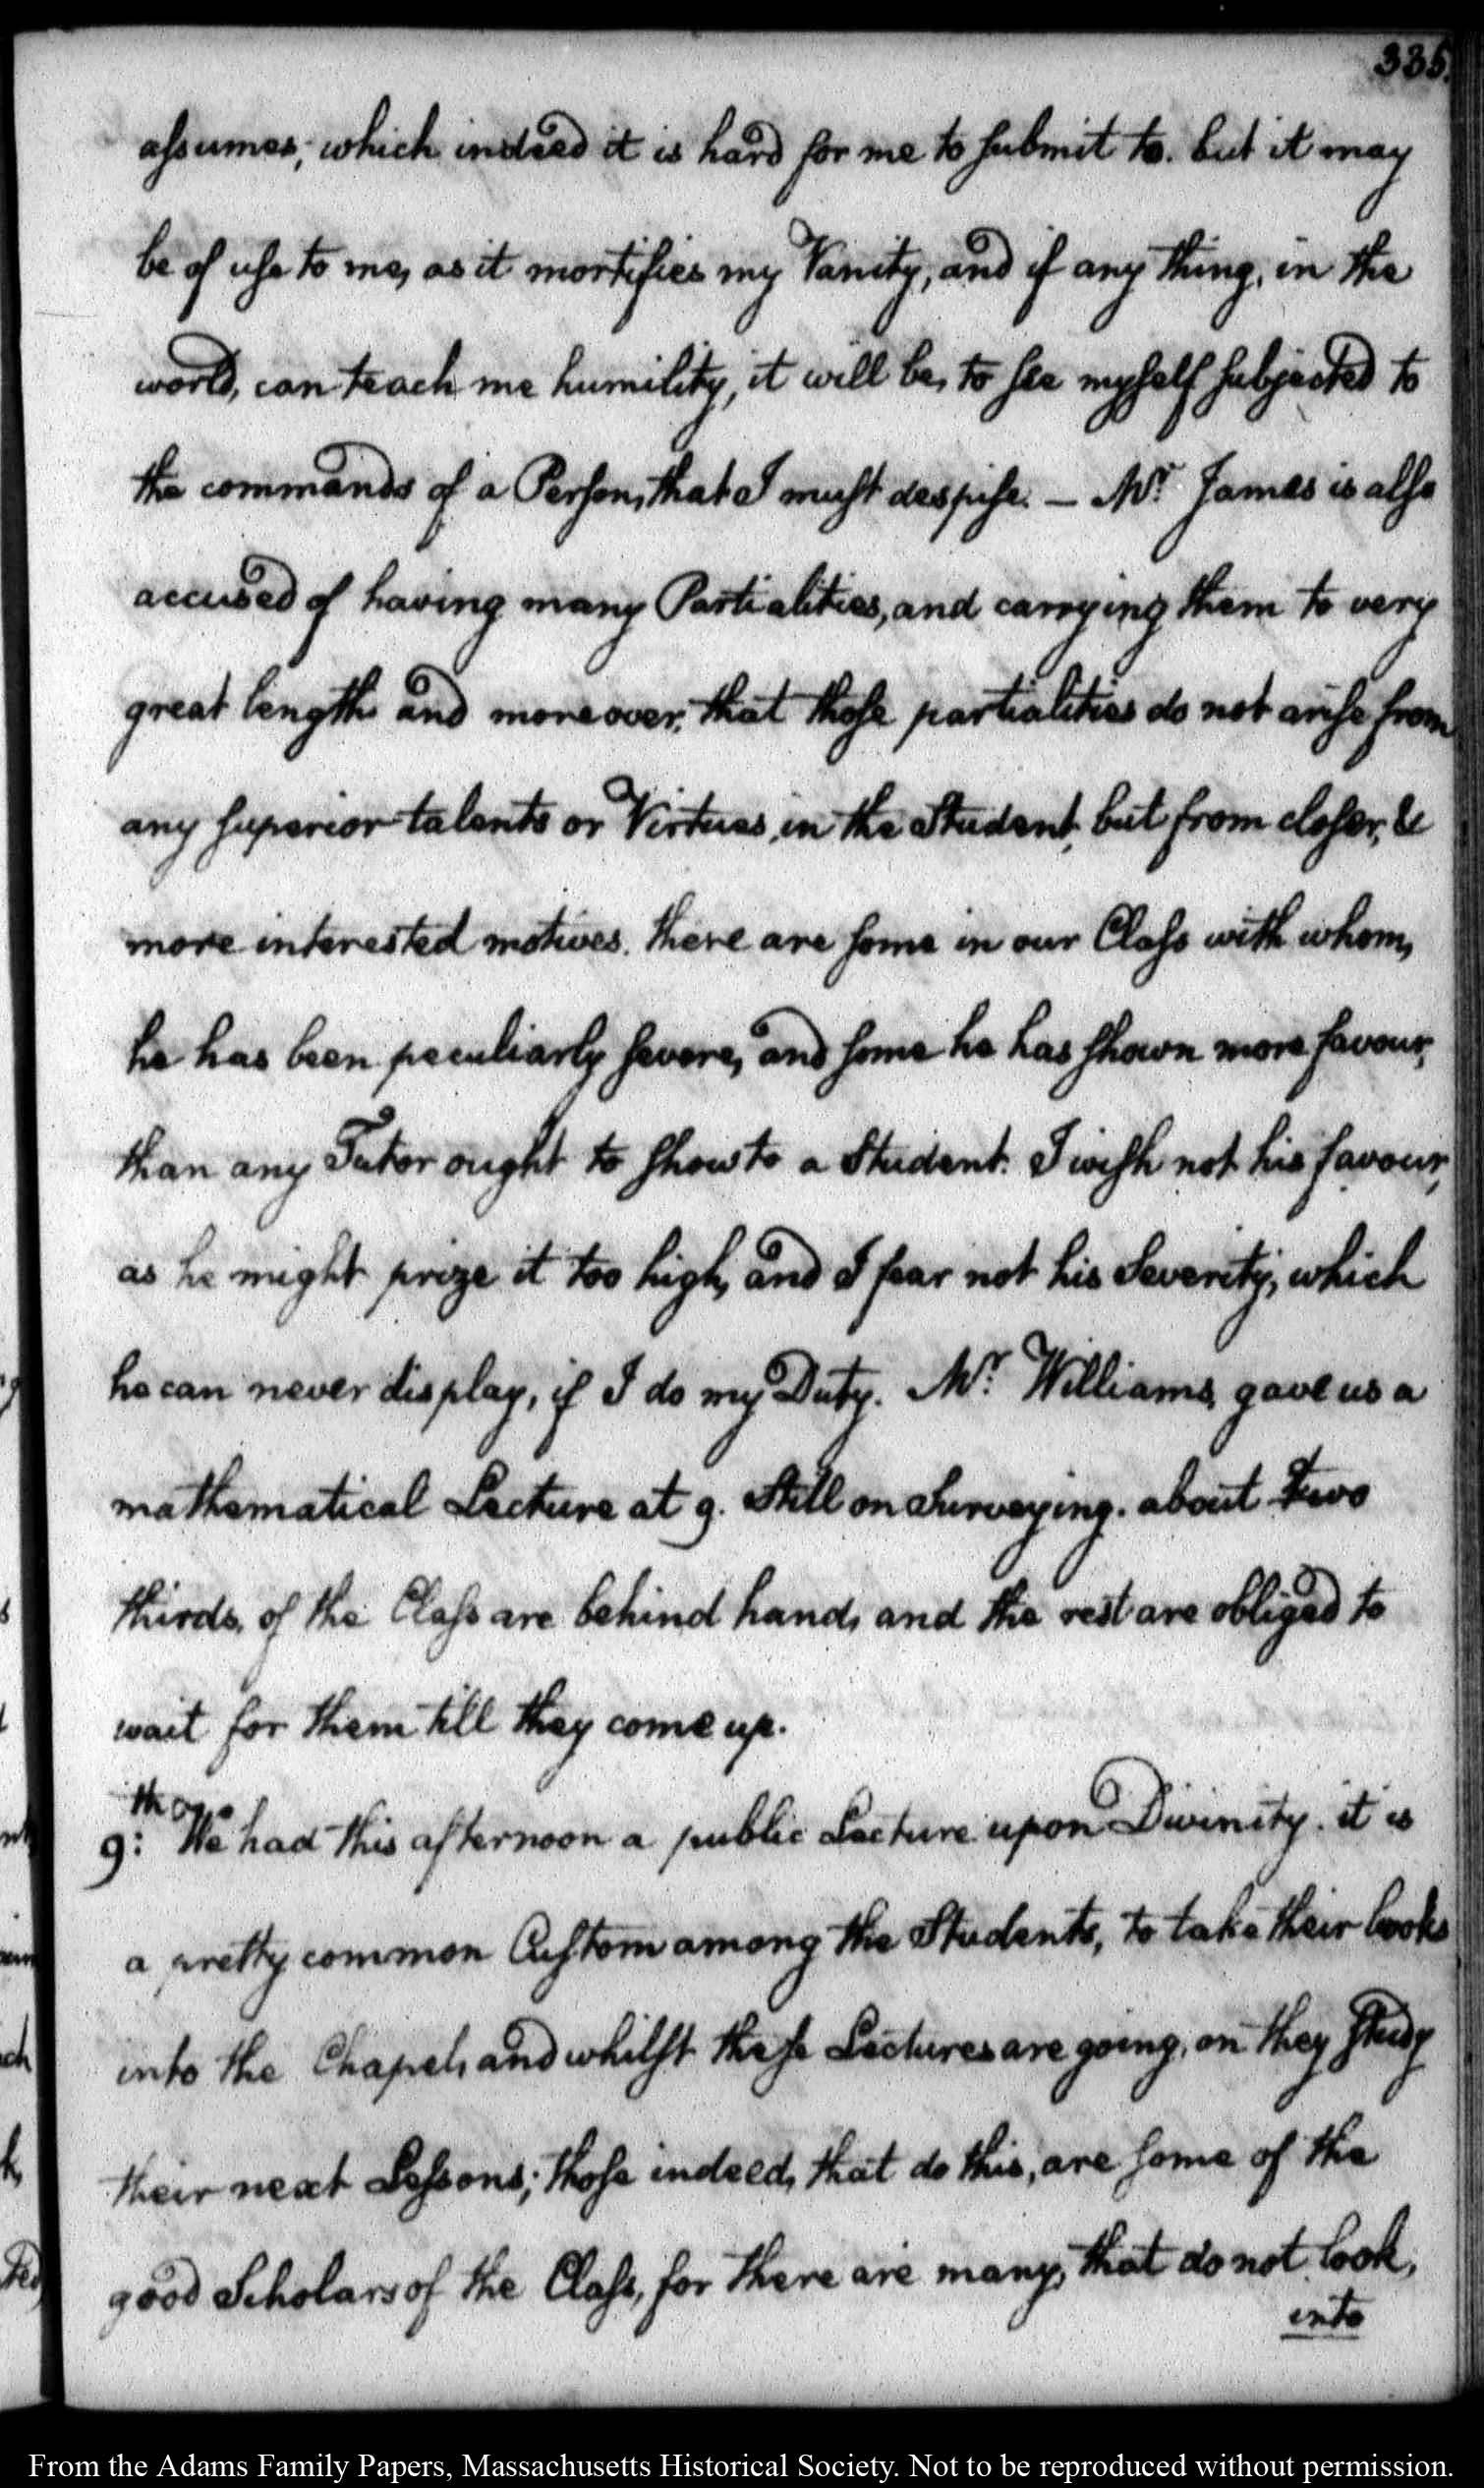 335.
assumes; which indeed it is hard for me to submit to. but it may
be of use to me, as it mortifies my Vanity, and if any thing, in the
world, can teach me humility, it will be, to see myself subjected to
the commands of a Person, that I must despise. — Mr. James is also
accused of having many Partialities, and carrying them to very
great length and moreover, that those partialities do not arise from
any superior talents or Virtues, in the Student, but from closer, &
more interested motives. there are some in our Class with whom,
he has been peculiarly severe, and some he has shown more favour,
than any Tutor ought to show to a Student. I wish not his favour,
as he might prize it too high, and I fear not his Severity, which
he can never display, if I do my Duty. Mr. Williams, gave us a
mathematical Lecture at 9. Still on Surveying. about two
thirds, of the Class are behind hand, and the rest are obliged to
wait for them till they come up.
9:th We had this afternoon a public Lecture upon Divinity. it is
a pretty common Custom among the Students, to take their books
into the Chapel, and whilst these Lectures are going, on they study
their next Lessons; those indeed, that do this, are some of the
good Scholars of the Class, for there are many, that do not look,
into
From the Adams Family Papers, Massachusetts Historical Society. Not to be reproduced without permission.